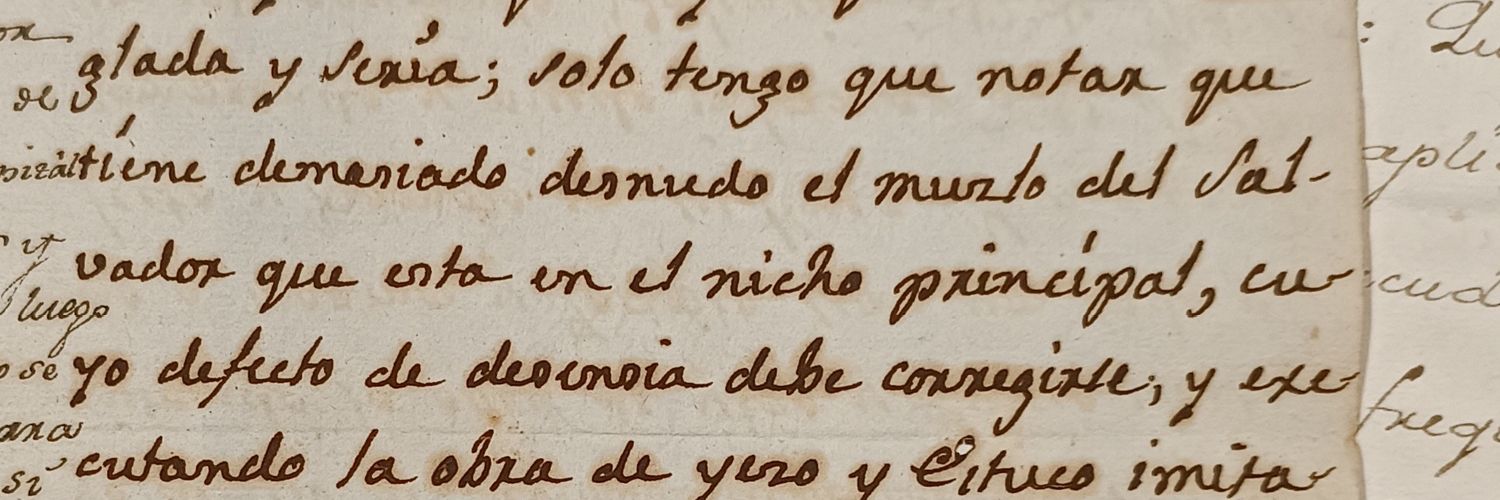 glada y seria; solo tengo que notar que
tiene demasiado desnudo el muzlo del Sal-
vador que esta en el nicho principal, cu-
yo defecto de desensia debe corregirse; y exe-
cutando la obra de yeso y Estuco imita-
de
y
luego
se
si
apli
cud
freq